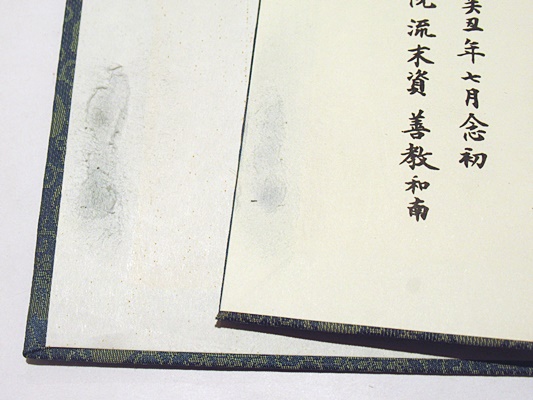 癸丑年七月念初
流末資 善教和南